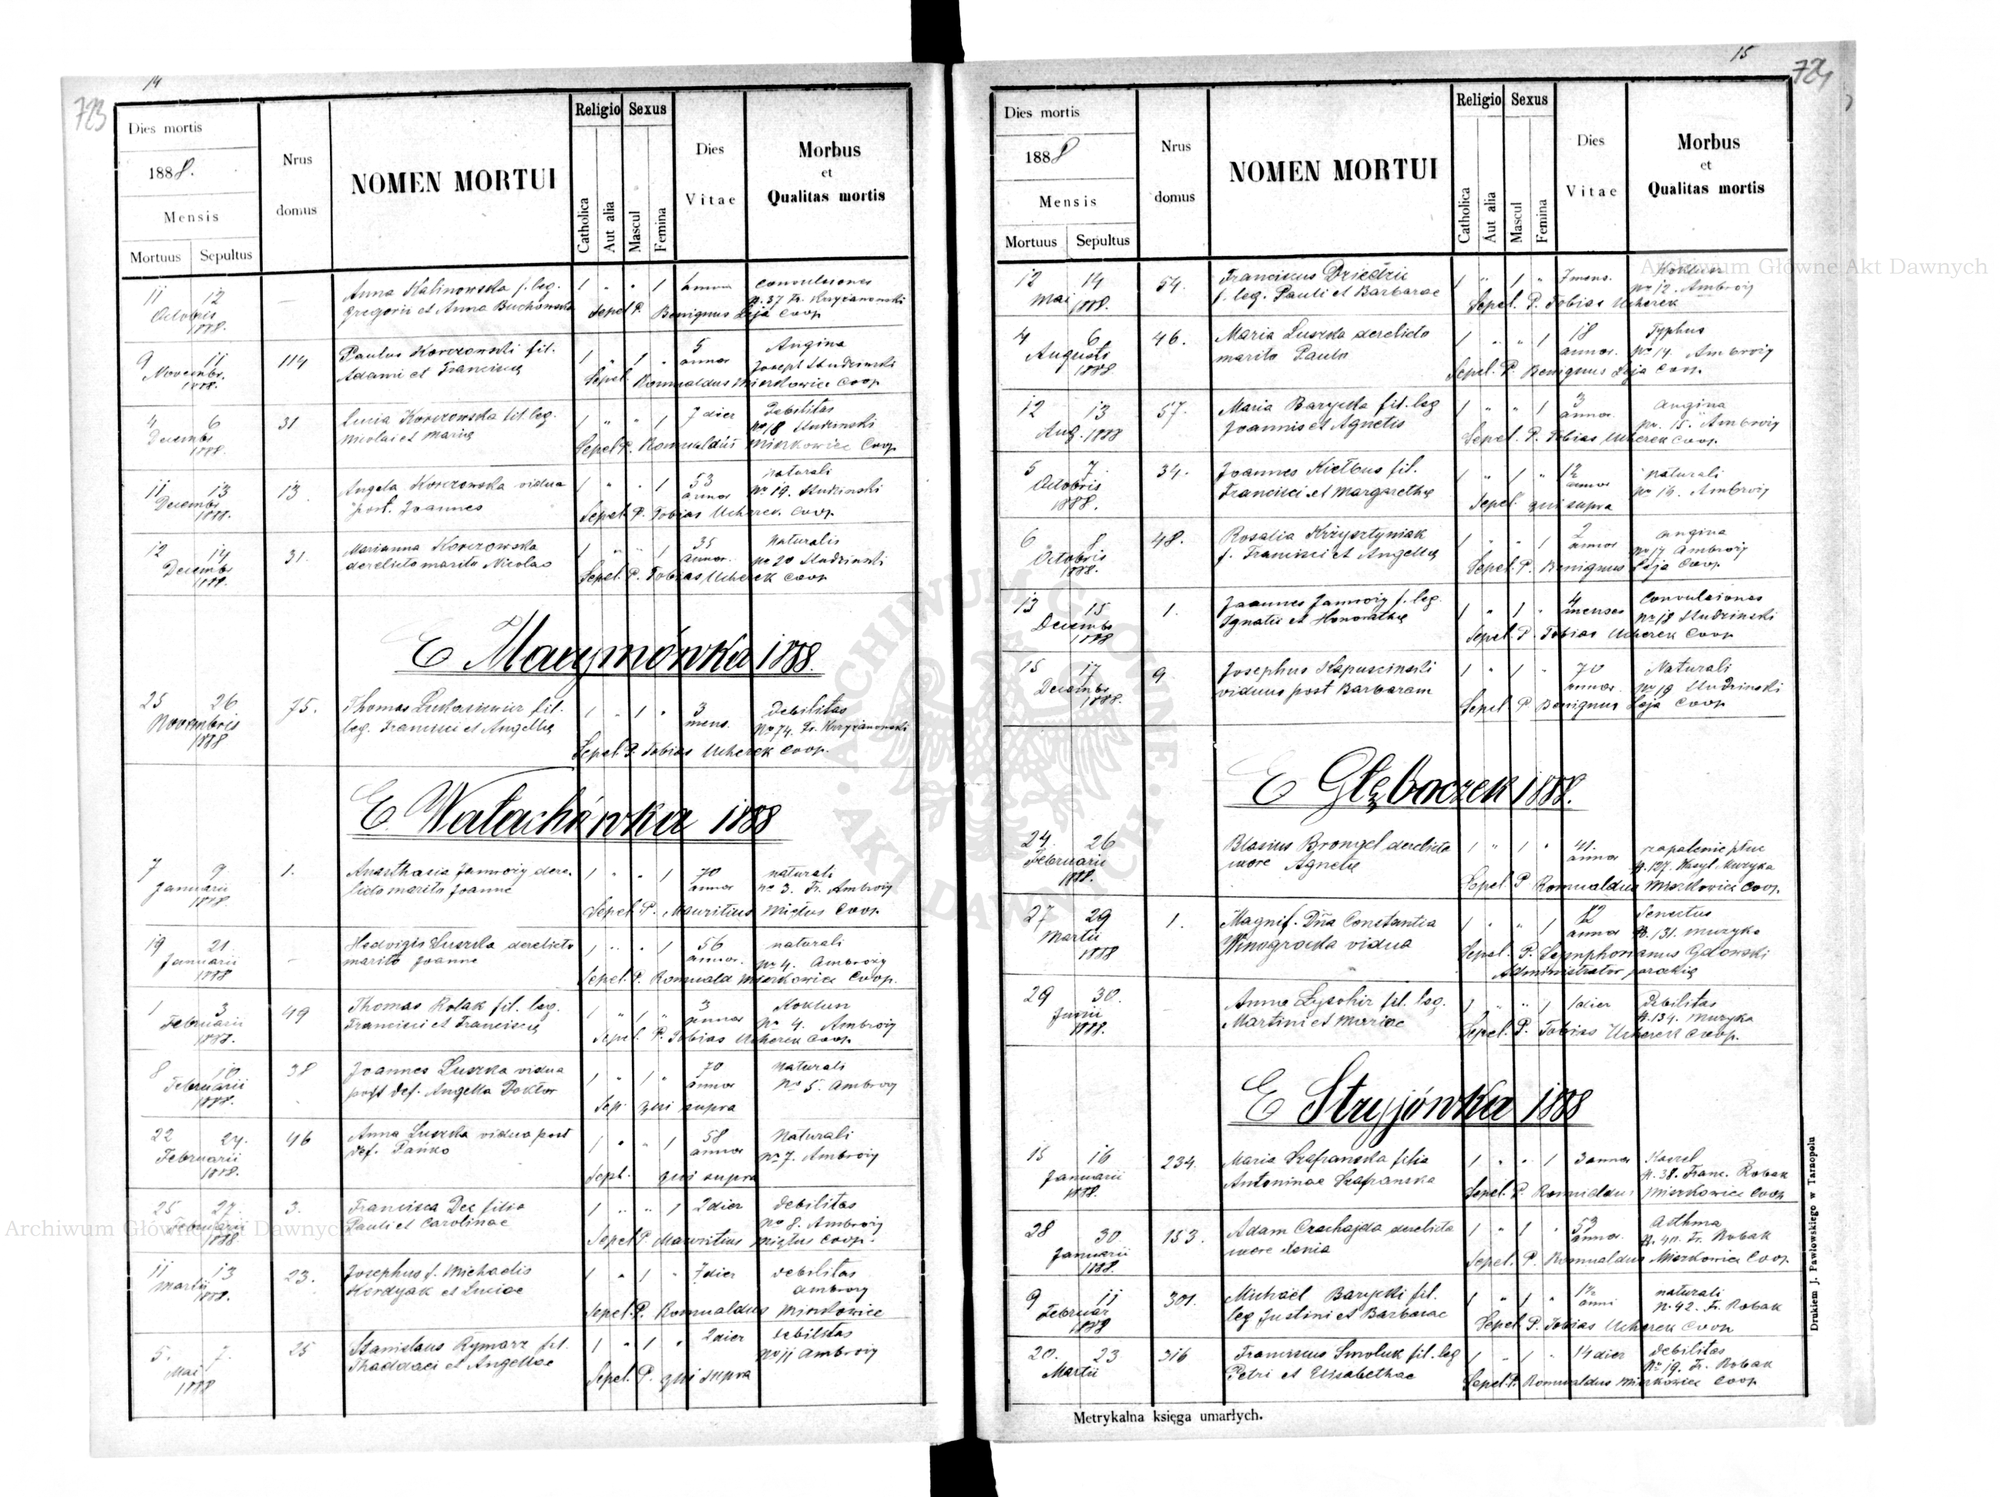 14
723
Dies mortis
1888.
Mensis
Mortuus Sepultus
Nrus
domus
NOMEN MORTUI
Religio
Catholica
Aut alia
Sexus
Mascul
Femina
Dies
Vitae
Morbus
et
Qualitas mortis
11 12
Octobris
1888.
—
Anna Kalinowska f. leg.
Gregorii et Anna
1 " " 1
convulsiones
N. 37 Fr. Krzyżanowski
Sepel P. Benignus Leja Coop
9 11
Novembr.
1888.
114
Paulus Korczowski fil.
Adami et Franciscę
1 " 1 "
5
annor
Angina
Joseph Studzinski
Sepel. Romualdus Mierkowice Coop
4 6
Decembr
1888.
31
Lucia Korczowska fil. leg.
Nicolai et Marię
1 " " 1
7 dier
Debilitas
No 18 Studzinski
Sepel P. Romualdus Mierkowice Coop
11 13
Decembr
1888.
13.
Angela Korczowska vidua
post. Joannes
1 " " 1
53
annor
naturali
No 19. Studzinski
Sepel. P. Tobias Ucherek Coop.
12 14
Decembr
1888.
31.
Marianna Korczowska
derelicto marito Nicolao
1 " " 1
35
annor.
Naturalis
No 20 Studzinski
Sepel. P. Tobias Ucherek Coop
E Marymówka 1888.
25 26.
Novembris
1888
75.
Thomas Łukasiewicz fil.
leg. Francisci et Angellę
1 " 1 "
3
mens.
Debilitas
No 74. Fr. Krzyżanowski
Sepel. P. Tobias Ucherek Coop.
E Wałachówka 1888
7 9
Januarii
1888.
1.
Anasthasia Jamroży dere-
licto marito Joanne
1 " " 1
70
annor
naturali
No 3. Fr. Ambroży
Sepel. P. Mauritius Miętus Coop
19 21.
Januarii
1888
-
Hedvigis Łuszka derelicto
marito Joanne
1 " " 1
56
annor.
naturali
No 4. Ambroży
Sepel. P. Romuald Mierkowice Coop.
1 3
Februarii
1888.
49
Thomas Rolak fil. leg.
Francisci et Franciscę
1 " 1 "
3
annor
Koklusz
No 4. Ambroży
Sepel. P. Tobias Ucherek Coop
8 10
Februarii
1888.
38
Joannes Łuszka vidua
post def. Angella Doktor
1 " 1 "
70
annor
Naturali
No 5. Ambroży
Sep. qui supra
22 24.
Februarii
1888.
46
Anna Łuszka vidua post
def. Pańko
1 " " 1
58
annor
Naturali
No 7. Ambroży
Sepl. qui supra
25 27.
Februarii
1888.
3.
Francisca Dec filia
Pauli et Carolinae
1 " " 1
2 dier
debilitas
No 8. Ambroży
Sepel P. Mauritius Miętus Coop.
11 13
Martii
1888.
23.
Josephus f. Michaelis
Kordyak et Luciae
1 " 1 "
7 dier
debilitas
Ambroży
Sepel. P. Romualdus Mierkowice
5. 7.
Mai
1888
25
Stanislaus Rymarz fil.
Thaddaei et Angellae
1 " 1 "
2 dier
debilitas
No 11 Ambroży
Sepel. P. qui supra
15
724
Dies mortis
1888
Mensis
Mortuus Sepultus
Nrus
domus
NOMEN MORTUI
Religio
Catholica
Aut alia
Sexus
Mascul
Femina
Dies
Vitae
Morbus
et
Qualitas mortis
12 14
Mai
1888.
54.
Franciscus Dziedzic
f. leg. Pauli et Barbarae
1 " 1 "
7 mens.
Koklusz
No 12. Ambroży
Sepel. P. Tobias Ucherek
4 6
Augusti
1888
46.
Maria Łuszka derelicto
marito Paulo
1 " " 1
18
annor.
Typhus
No 14. Ambroży
Sepel. P. Benignus Leja Coop.
12 13
Aug. 1888
57.
Maria Barycka fil. leg
Joannis et Agnetis
1 " " 1
3
annor.
Angina
No. 15. Ambroży
Sepel. P. Tobias Ucherek Coop.
5 7.
Octobris
1888.
34.
Joannes Kiełbus fil.
Francisci et Margarethę
1 " 1 "
12
annor
naturali
No 14. Ambroży
Sepel. qui supra
6 8
Octobris
1888.
48.
Rosalia Krzysztyniak
f. Francisci et Angellę
1 " " 1
2
annor
angina
No 17 Ambroży
Sepel. P. Benignus Leja Coop.
13 15
Decembr
1888
1.
Joannes Jamroży f. leg.
Ignatii et Honorathę
1 " 1 "
4
menses
Convulsiones
No 18 Studzinski
Sepel. P. Tobias Ucherek Coop
15 17
Decembr
1888.
9
Josephus Kapuscinski
viduus post Barbaram
1 " 1 "
70
annor.
Naturali
No 19 Studzinski
Sepel P Benignus Leja Coop
E Głęboczek 1888.
24. 26
Februarii
1888.
Blasius Brongel derelicta
uxore Agnetę
1 " 1 "
41.
annor
zapalenie płuc
N. 127. Wasyl Muzyka
Sepel. P Romualdus Mierkowice Coop.
27 29
Martii
1888
1.
Magnif. Dña Constantia
Winogrocka vidua
1 " " 1
annor
Senectus
N. 131. Muzyka
Sepel. P. Symphorianus Gdowski
Administrator parochię
29 30.
Junii
1888.
Anna Łysohir fil. leg.
Martini et Mariae
1 " " 1
1 dier
Debilitas
N. 134. Muzyka
Sepel. P. Tobias Ucherek Coop.
E Stryjówka 1888
15 16
Januarii
1888.
234.
Maria Szafranska filia
Antoninae Szafranska
1 " " 1
3 annor
Kaszel
N. 38. Franc. Robak
Sepel. P. Romualdus Mierkowice Coop
28 30.
Januarii
1888.
153.
Adam Czachajda derelicta
uxore Xenia
1 " 1 "
53
annor.
Asthma
N. 40. Fr. Robak
Sepel. P. Romualdus Mierkowice Coop.
9 11
Februar
1888
301.
Michaël Barycki fil.
leg Justini et Barbarae
1 " 1 "
1½
anni
naturali
N. 42. Fr. Robak
Sepel P. Tobias Ucherek Coop
20. 23.
Martii
316
Franciscus Smoluk fil. leg
Petri et Elisabethae
1 " 1 "
14 dier
debilitas
No. 19. Fr. Robak
Sepel. P. Romualdus Mierkowice Coop
Metrykalna księga umarłych.
Drukiem J. Pawłowskiego w Tarnopolu
Archiwum Główne Akt Dawnych
Archiwum Główne Akt Dawnych
ARCHIWUM GŁÓWNE AKT DAWNYCH